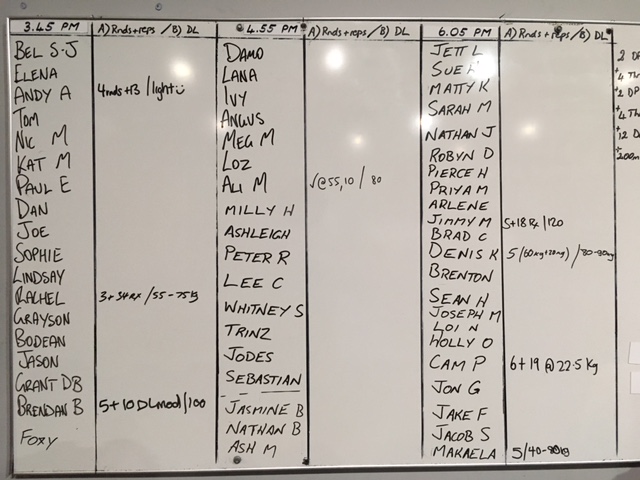 3.45 PM A) Rnds+reps / B) DL
BEL S-J
ELENA
ANDY A 4rnds+13 / light
TOM
NIC M
KAT M
PAUL E
DAN
JOE
SOPHIE
LINDSAY
RACHEL 3+34RX / 55-75kg
GRAYSON
BODEAN
JASON
GRANT DB
BRENDAN B 5+10 DLmod / 100
FOXY
4.55 PM A) Rnds+reps / B) DL
DAMO
LANA
IVY
ANGUS
MEG M
LOZ
ALI M √@55,10 / 80
MILLY H
ASHLEIGH
PETER R
LEE C
WHITNEY S
TRINZ
JODES
SEBASTIAN
JASMINE B
NATHAN B
ASH M
6.05 PM A) Rnds+reps / B) DL
JETT L
SUE H
MATTY K
SARAH M
NATHAN J
ROBYN D
PIERCE H
PRIYA M
ARLENE
JIMMY M 5+18 Rx / 120
BRAD C
DENIS K 5 (60kg+20kg) / 80-90kg
BRENTON
SEAN H
JOSEPH M
LOI N
HOLLY O
CAM P 6+19 @ 22.5 Kg
JON G
JAKE F
JACOB S
MAKAELA 5/40-80kg
2 DP
+4 Th
+2 DP
+4 Th
+12 D
+200m